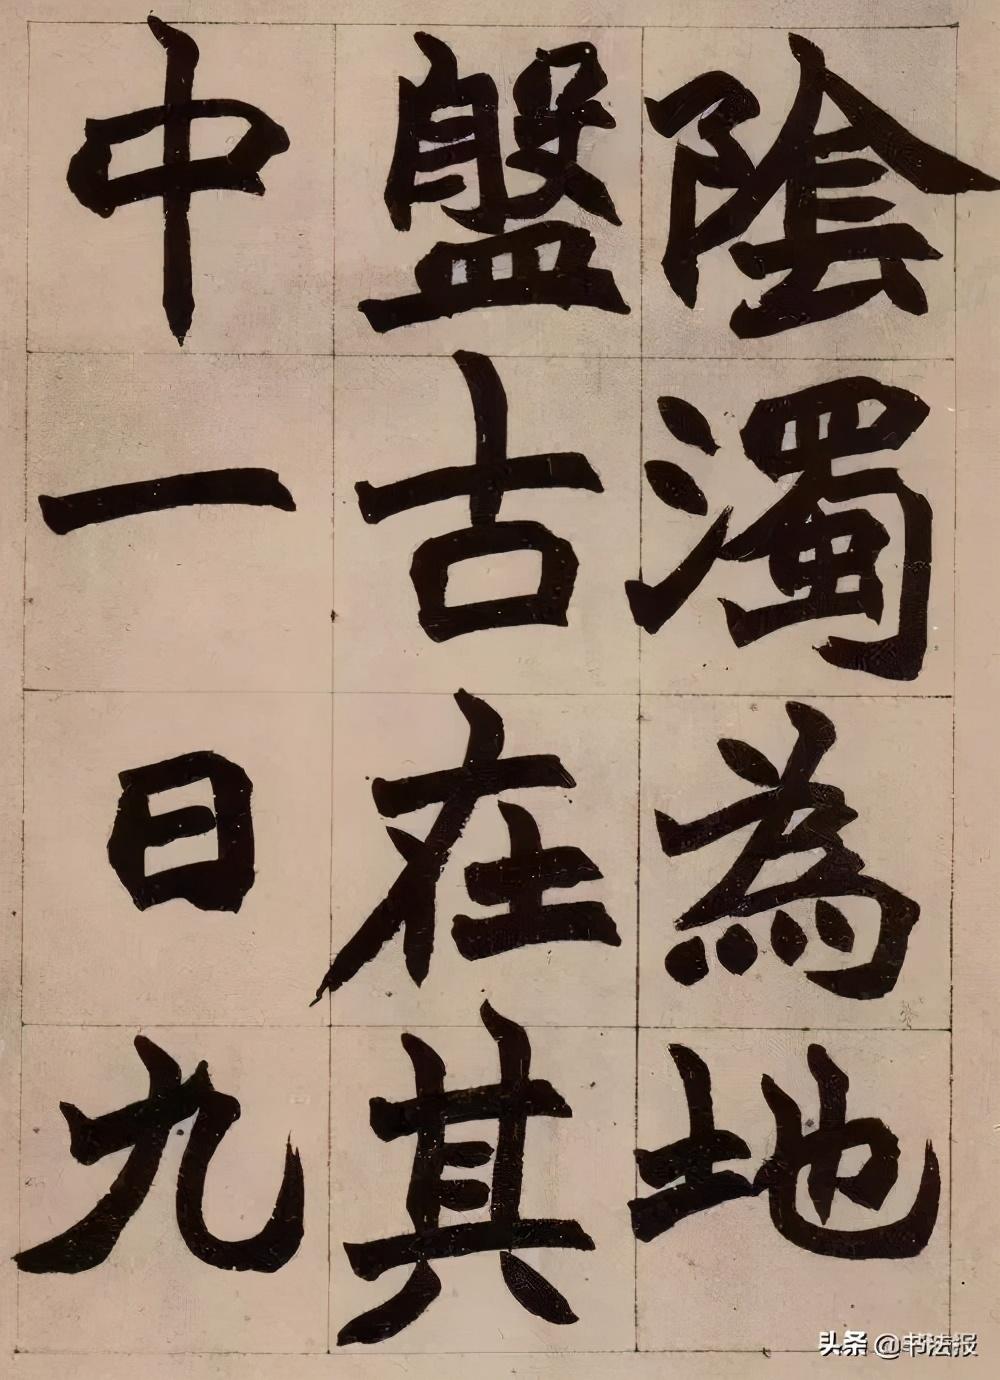 陰濁為地
盤古在其
中一日九
头条 @书法报